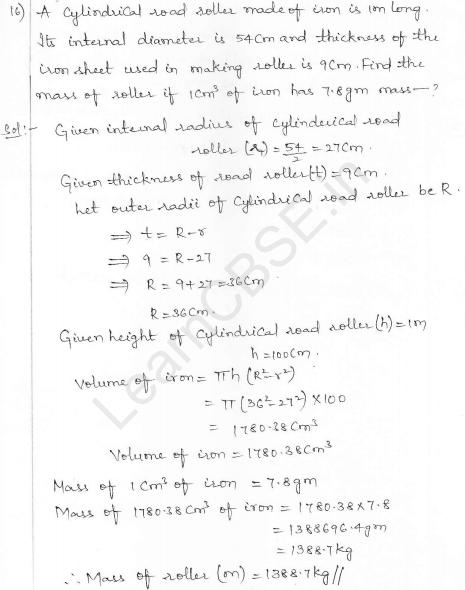 16) A Cylindrical road roller made of iron is 1m long.
Its internal diameter is 54Cm and thickness of the
iron sheet used in making roller is 9Cm. Find the
mass of roller if 1Cm³ of iron has 7.8gm mass—?
Sol:- Given internal radius of cylindrical road
roller (r) = 54/2 = 27Cm.
Given thickness of road roller(t) = 9Cm.
Let outer radii of Cylindrical road roller be R.
⟹ t = R-r
⟹ 9 = R-27
⟹ R = 9+27 = 36Cm
R = 36Cm.
Given height of cylindrical road roller (h) = 1m
h = 100Cm.
Volume of iron = πh (R²-r²)
= π (36²-27²) ×100
= 1780.38Cm³
Volume of iron = 1780.38Cm³
Mass of 1Cm³ of iron = 7.8gm
Mass of 1780.38Cm³ of iron = 1780.38×7.8
= 1388696.4gm
= 1388.7kg
∴ Mass of roller (m) = 1388.7kg//
LearnCBSE.in